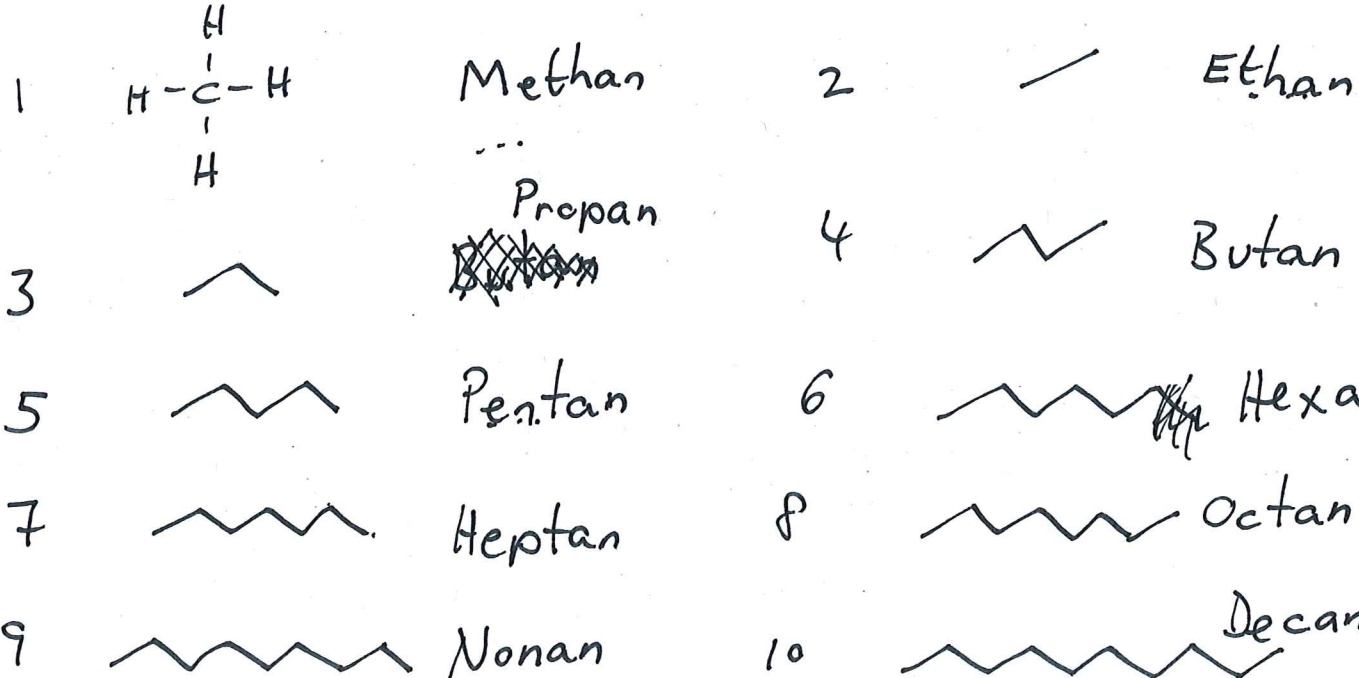 H
1 H-C-H Methan 2 Ethan
H
...
Propan
3 4 Butan
5 Pentan 6 Hexa
7 Heptan 8 Octan
9 Nonan 10 Decan